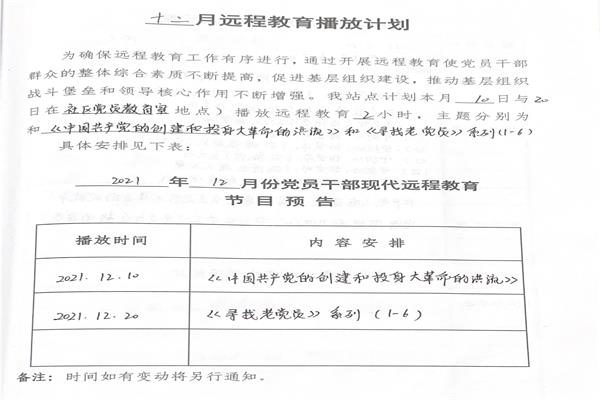 十二月远程教育播放计划
为确保远程教育工作有序进行，通过开展远程教育使党员干部
群众的整体综合素质不断提高，促进基层组织建设，推动基层组织
战斗堡垒和领导核心作用不断增强。我站点计划本月10日与20
日在社区党员教育室地点）播放远程教育2小时，主题分别为
和《中国共产党的创建和投身大革命的洪流》和《寻找老党员》系列(1-6)
具体安排见下表：
2021年12月份党员干部现代远程教育
节目预告
播放时间 内容安排
2021.12.10 《中国共产党的创建和投身大革命的洪流》
2021.12.20 《寻找老党员》系列（1-6）
备注：时间如有变动将另行通知。